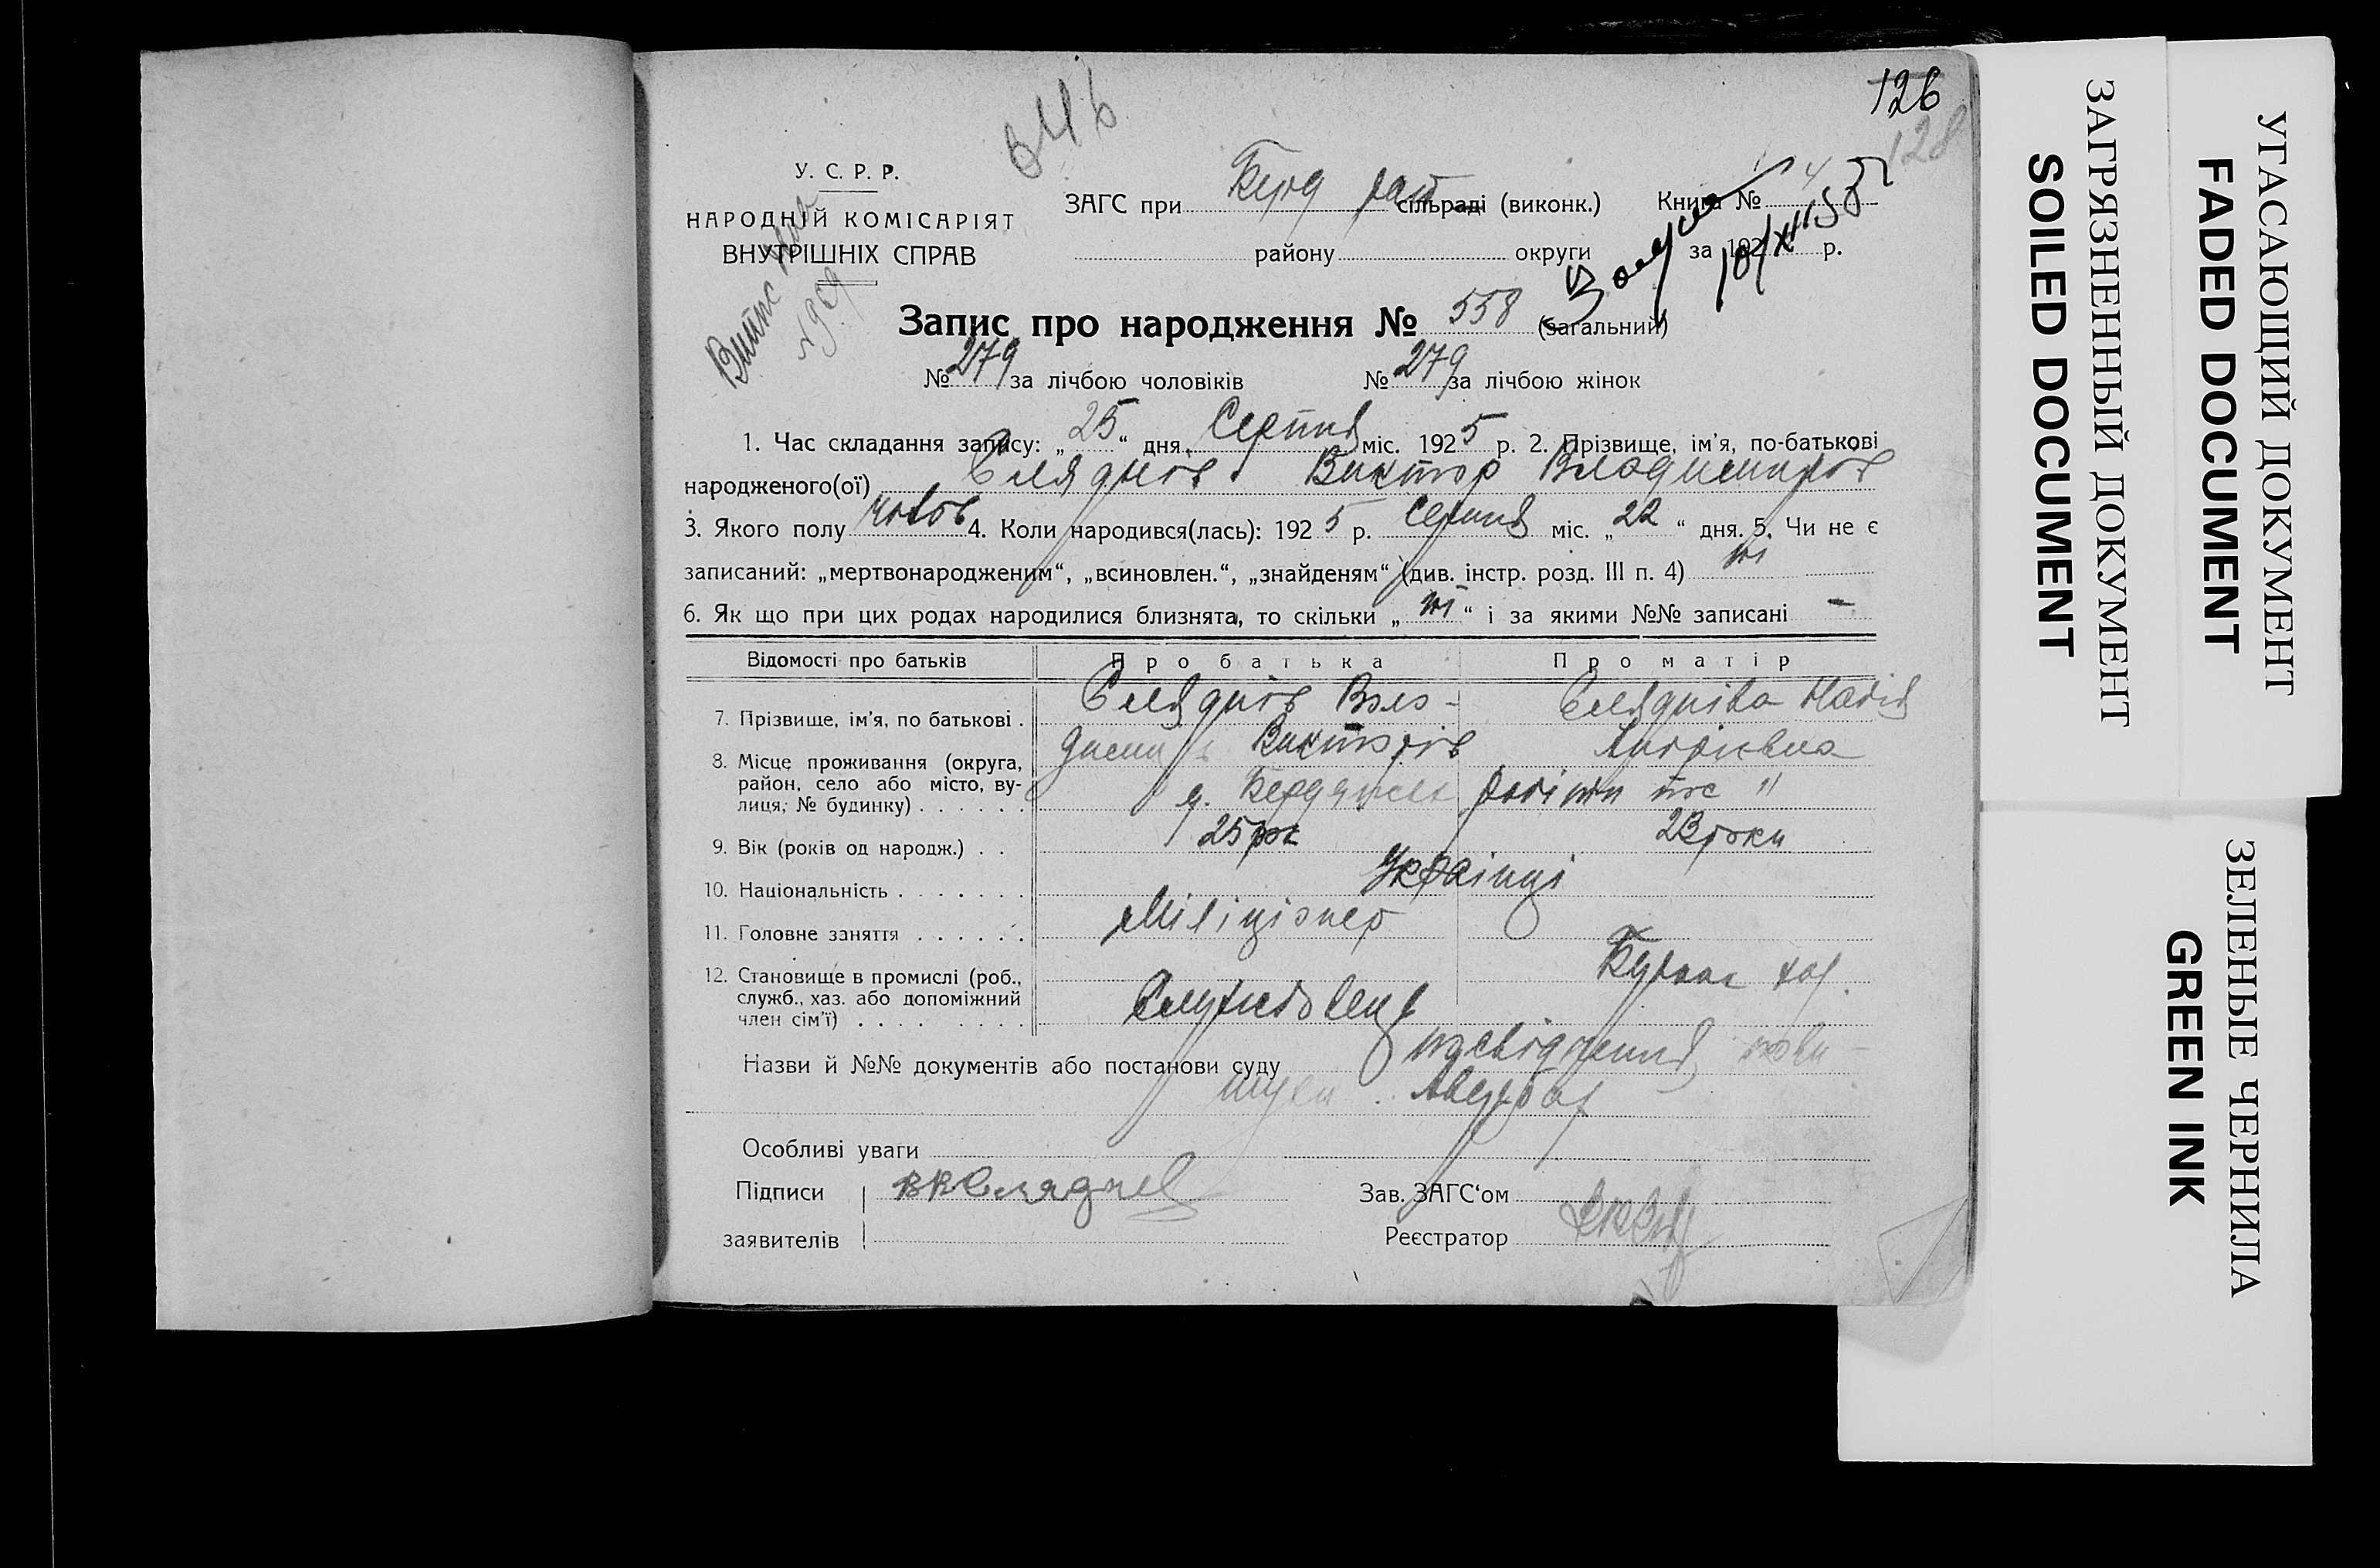 126
128
У. С. Р. Р.
НАРОДНІЙ КОМІСАРІЯТ
ВНУТРІШНІХ СПРАВ
ЗАГС при Берд рай сільраді (виконк.)
Книга №
району округи за 192 р.
Запис про народження № 558 (загальний)
№ 279 за лічбою чоловіків № 279 за лічбою жінок
1. Час складання запису: „25“ дня Серпня міс. 1925 р. 2. Прізвище, ім’я, по-батькові
народженого(ої) Слядньов Виктор Владимиров
3. Якого полу чолов 4. Коли народився(лась): 1925 р. Серпня міс. „22“ дня. 5. Чи не є
записаний: „мертвонародженим“, „всиновлен.“, „знайденям“ (див. інстр. розд. III п. 4) ні
6. Як що при цих родах народилися близнята, то скільки „ні“ і за якими №№ записані —
Відомості про батьків Про батька Про матір
7. Прізвище, ім’я, по батькові . Сляднів Воло- Сляднівa Надія
димир Викторів Андріевна
8. Місце проживання (округа,
район, село або місто, ву-
лиця, № будинку) . . . . . . м. Бердянськ
9. Вік (років од народж.) . . 25 рок 23 роки
10. Національність . . . . . . . Українці
11. Головне заняття . . . . . . Міліціонер
12. Становище в промислі (роб.,
служб., хаз. або допоміжний
член сім’ї) . . . . . . . . Службовець
Назви й №№ документів або постанови суду посвідчення пови-
тухи
Особливі уваги
Підписи ВВСляднев Зав. ЗАГС‘ом
заявителів Реєстратор
ЗАГРЯЗНЕННЫЙ ДОКУМЕНТ
SOILED DOCUMENT
УГАСАЮЩИЙ ДОКУМЕНТ
FADED DOCUMENT
ЗЕЛЕНЫЕ ЧЕРНИЛА
GREEN INK